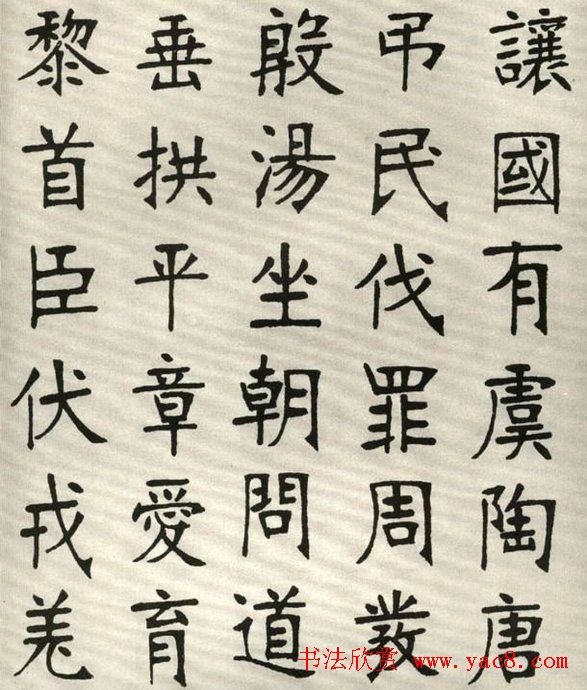 讓國有虞陶唐
弔民伐罪周發
殷湯坐朝問道
垂拱平章愛育
黎首臣伏戎羌
书法欣赏 www.yac8.com